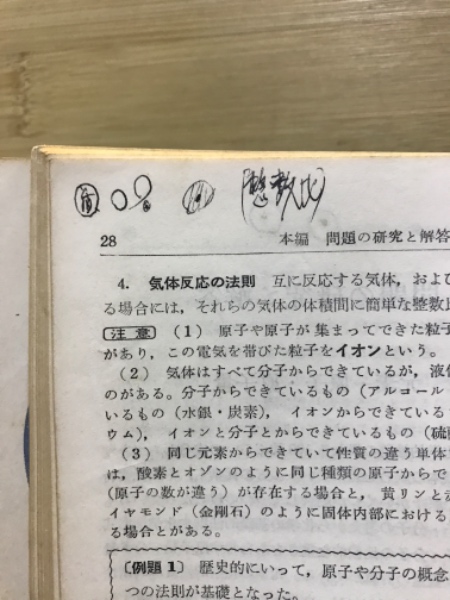 28
本編 問題の研究と解答
4. 気体反応の法則 互に反応する気体，およ
る場合には，それらの気体の体積間に簡単な整数比
注意 (1) 原子や原子が集まってできた粒子
があり，この電気を帯びた粒子をイオンという。
(2) 気体はすべて分子からできているが，液
のがある。分子からできているもの（アルコール
いるもの（水銀・炭素）， イオンからできている
ウム）， イオンと分子とからできているもの（硫
(3) 同じ元素からできていて性質の違う単体
は，酸素とオゾンのように同じ種類の原子からで
（原子の数が違う）が存在する場合と，黄リンと
イヤモンド（金剛石）のように固体内部における
る場合とがある。
〔例題 1〕 歴史的にいって，原子や分子の概念
つの法則が基礎となった。